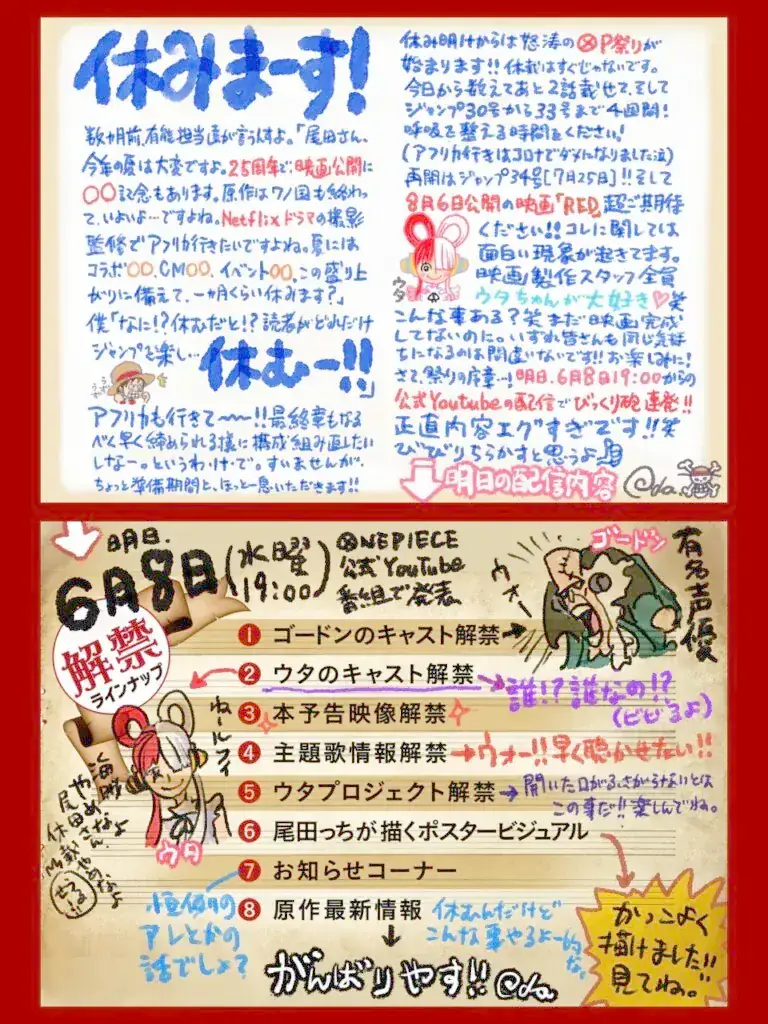 休みまーす!
数ヶ月前、有能担当達が言うんすよ。「尾田さん、
今年の夏は大変ですよ。25周年で、映画公開に
〇〇記念もあります。原作はワノ国も終わっ
て、いよいよ…ですよね。Netflixドラマの撮影
監修でアフリカ行きたいですよね。夏には
コラボ〇〇、CM〇〇、イベント〇〇。この盛り上
がりに備えて、一ヶ月くらい休みます?」
僕「なに!?休むだと!?読者がどれだけ
ジャンプを楽し…
休むー!!」
アフリカも行きて〜〜!!最終章もなる
べく早く締められる様に構成組み直したい
しなー。というわ・け・で。すいませんが、
ちょっと準備期間と、ほっと一息いただきます!!
休み明けからは怒涛のOP祭りが
始まります!!休載はすぐじゃないです。
今日から数えてあと2話載せて、そして
ジャンプ30号から33号まで4週間!
呼吸を整える時間をください!
(アフリカ行きはコロナでダメになりました泣)
再開はジャンプ34号[7月25日]!!そして
8月6日公開の映画「RED」超ご期待
ください!!コレに関しては
面白い現象が起きてます。
映画製作スタッフ全員
ウタちゃんが大好き♡笑
ウタ
こんな事ある?笑 まだ映画完成
してないのに。いずれ皆さんも同じ気持
ちになるのは間違いないです!!お楽しみに!
さて、祭りの序章…!明日、6月8日19:00からの
公式Youtubeの配信でびっくり砲連発!!
正直内容エグすぎです!!笑
びびりちらかすと思うよ
明日の配信内容
Oda.
明日.
6月8日(水曜 19:00)
ONEPIECE
公式YouTube
番組で発表
ウォー
ゴードン
有名声優
解禁
ラインナップ
1 ゴードンのキャスト解禁
2 ウタのキャスト解禁
誰!?誰なの!?
(ビビるよ)
3 本予告映像解禁
4 主題歌情報解禁
ウォー!!早く聴かせたい!!
5 ウタプロジェクト解禁
開いた口がふさがらないとは
この事だ!!楽しんでね。
6 尾田っちが描くポスタービジュアル
7 お知らせコーナー
8 原作最新情報
ねールフィ
海賊
やめなよ
尾田さん
休載やめなよ
うるせェ!!
ウタ
恒例の
アレとかの
話でしょ?
休むんだけど
こんな事やるよー的な。
がんばりやす!! Oda.
かっこよく
描けました!!
見てね。